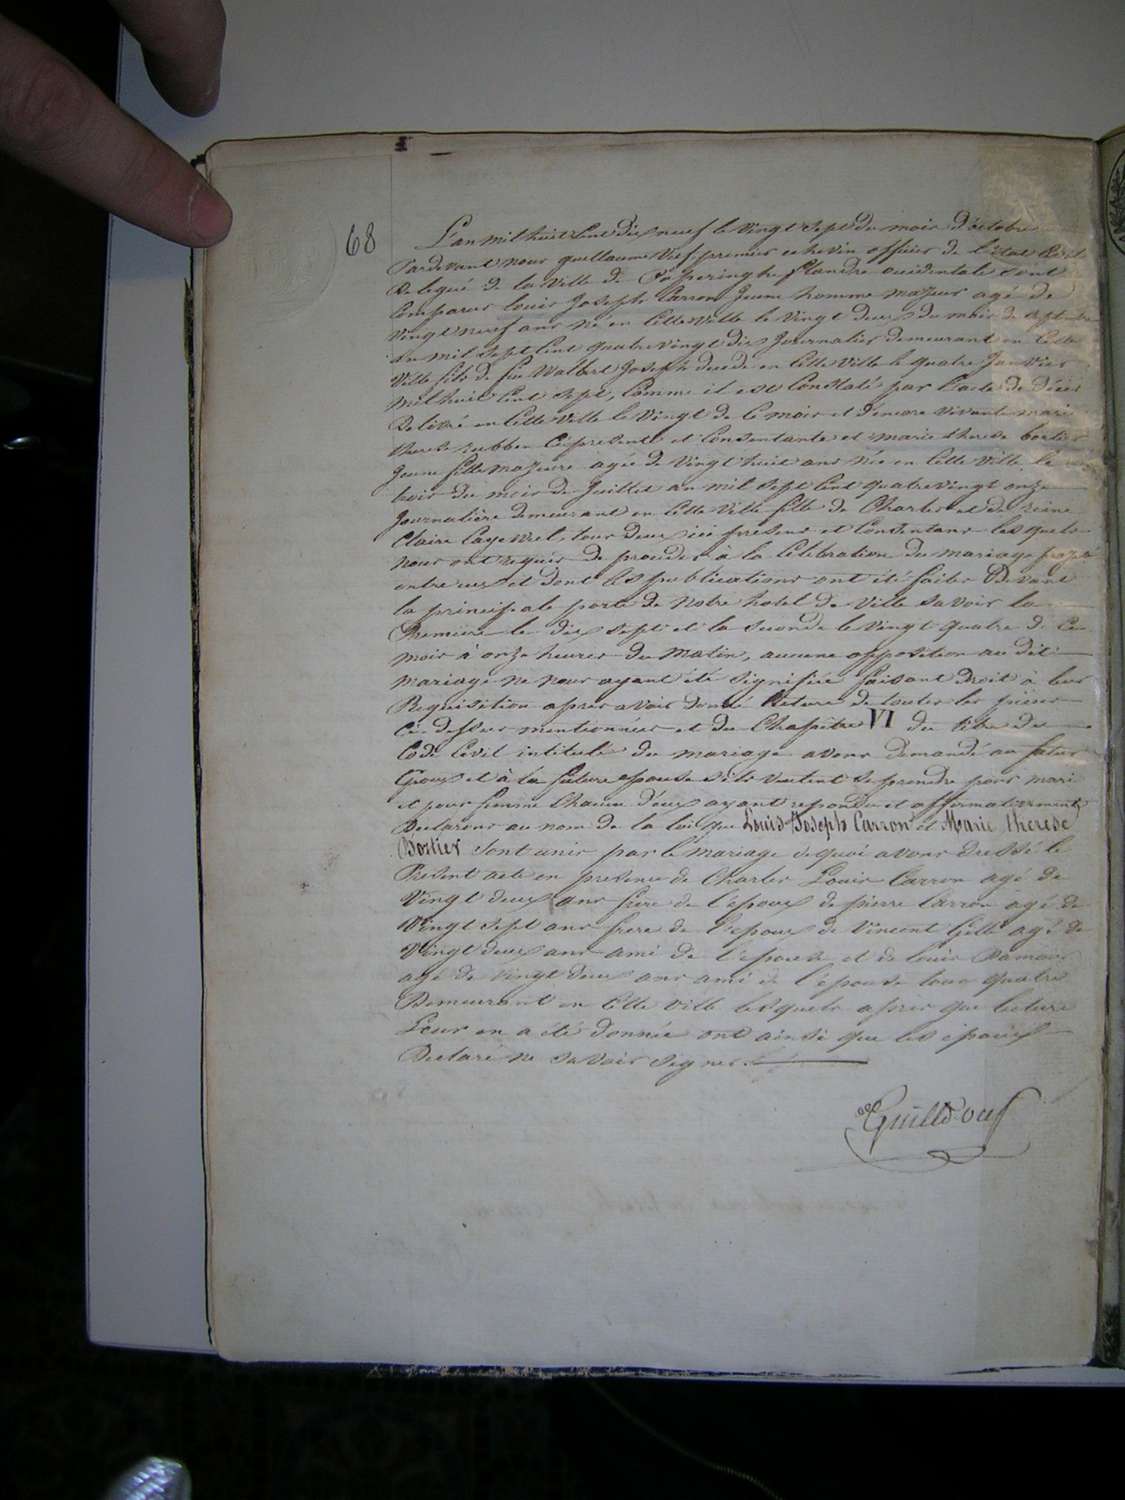 68
L'an mil huit cent dix neuf le vingt sept du mois d'octobre
Pardevant nous guillaume premier echevin officier de l'état Civil
Delegué de la Ville de Poperinghe flandre occidentale sont
Comparus louis Joseph Carron Jeune homme majeur agé de
Vingt neuf ans né en Cette Ville le Vingt deux du mois de septembre
du mil sept Cent quatre vingt dix Journalier demeurant en Cette
Ville fils de feu Joseph decedé en Cette Ville le quatre Janvier
mil huit Cent sept, Comme il est Constaté par l'acte de décès
Delivré en Cette Ville le Vingt de Ce mois et d'encore vivante marie
therese Cipresente et Consentante et marie therese bortier
Jeune fille majeure agée de Vingt huit ans née en Cette Ville le
trois du mois de Juillet an mil sept Cent quatre vingt onze
Journalière demeurant en Cette Ville fille de Charles et de reine
Claire tous deux ici present et Consentans lesquels
nous ont requis de proceder à la Celebration du mariage projeté
entre eux et dont les publications ont été faites Devant
la principale porte de Notre hotel de Ville Savoir la
Premiere le dix sept et la seconde le Vingt quatre de Ce
mois à onze heures du Matin, aucune opposition au dit
mariage ne nous ayant été signifiée faisant droit à leur
Requisition apres avoir donné lecture de toutes les pièces
Ci dessus mentionnées et du Chapitre VI du titre du
Code Civil intitulé du mariage avons demandé au futur
Epoux et à la future epouse s'ils veulent se prendre pour mari
et pour femme Chacun d'eux ayant repondu et affirmativement
Declarons au nom de la loi que Louis Joseph Carron et Marie therese
Bortier sont unis par le mariage de quoi avons dressé le
Present acte en presence de Charles Louis Carron agé de
Vingt deux ans frere de l'époux de pierre Carron agé de
Vingt sept ans frere de l'epoux de Vincent agé de
Vingt deux ans ami de l'epouse et de louis
agé de vingt deux ans ami de l'épouse tous quatre
Demeurant en Cette Ville lesquels apres que lecture
Leur en a été donnée ont ainsi que les époux
Declaré ne savoir signer.